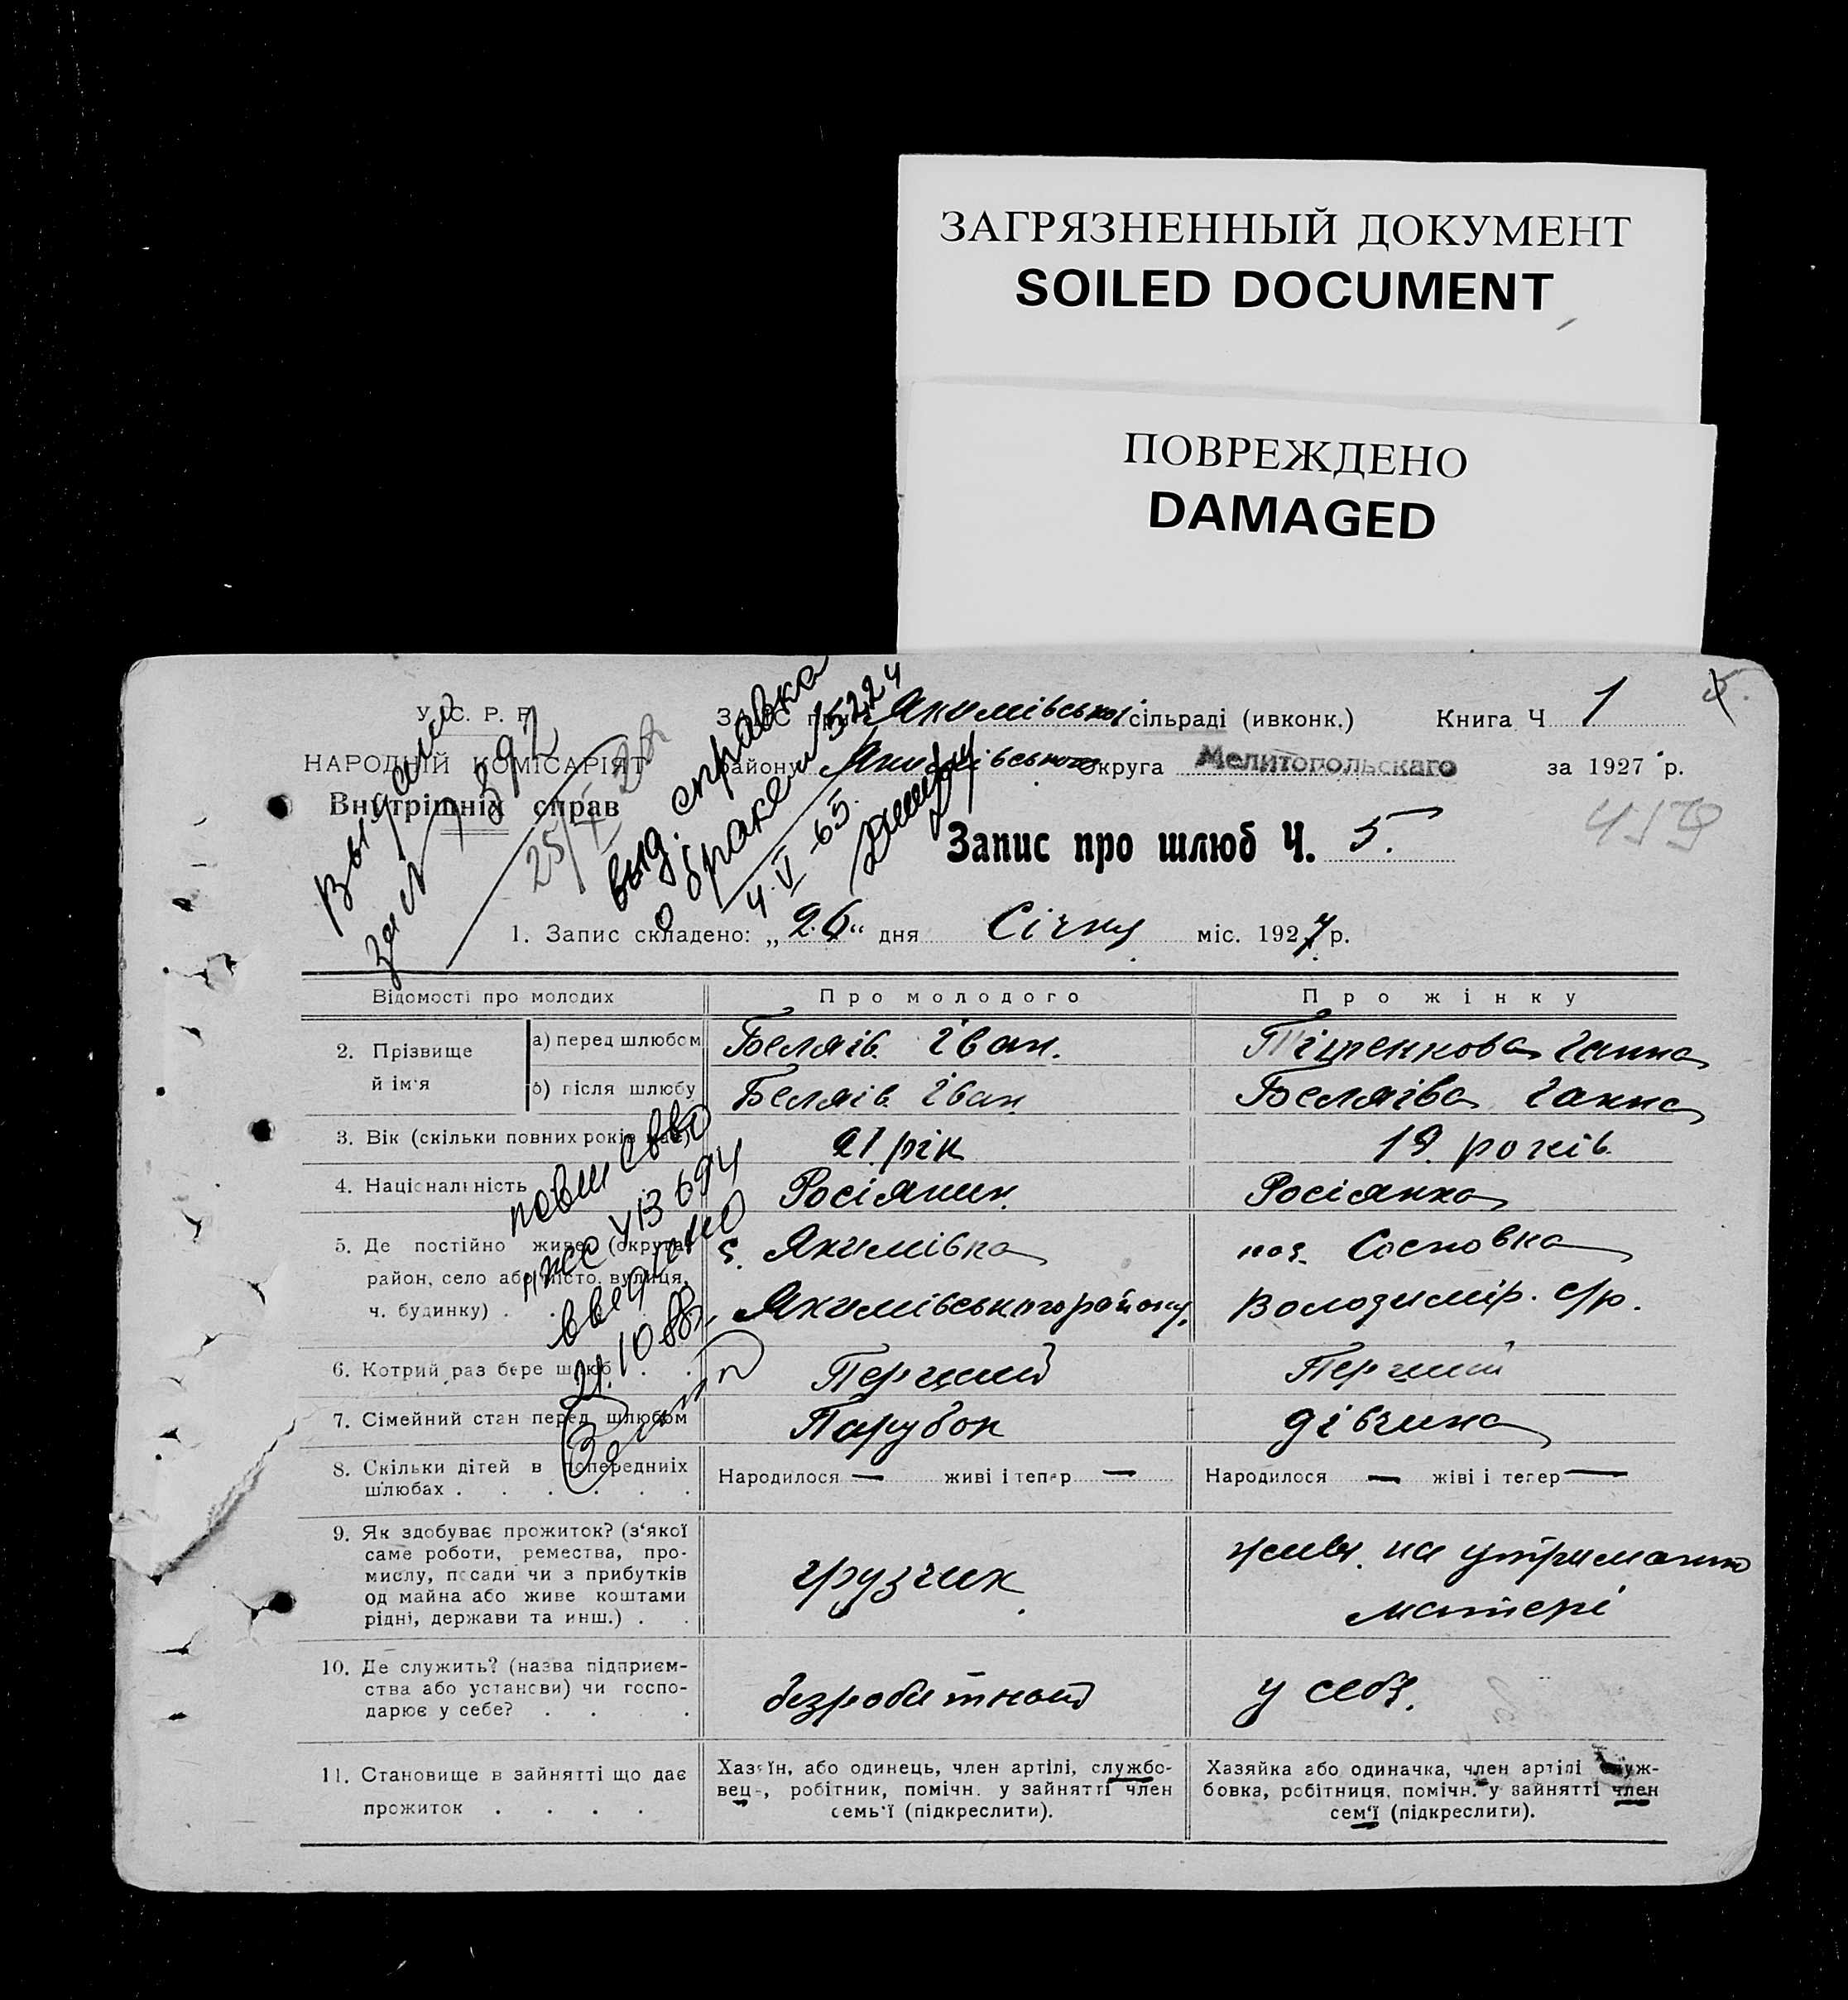 ЗАГРЯЗНЕННЫЙ ДОКУМЕНТ
SOILED DOCUMENT
ПОВРЕЖДЕНО
DAMAGED
У. С. Р. Р.
НАРОДНІЙ КОМІСАРІЯТ
Внутрішніх справ
Якимівської сільраді (ивконк.) Книга Ч 1
району Якимівського Округа Мелитопольскаго за 1927 р.
Запис про шлюб Ч. 5.
459
выд. справка
о браке
4.V-65.
25/V
1. Запис складено: „26“ дня Січня міс. 1927 р.
Відомості про молодих Про молодого Про жінку
2. Прізвище й ім'я
а) перед шлюбом Беляів Іван. Тіщенкова Ганна
б) після шлюбу Беляів Іван Беляіва Ганна
3. Вік (скільки повних років має) 21 рік 19 років
4. Національність Росіянин Росіянка
5. Де постійно живе (округа, с. Якимівка пос. Сосновка
район, село або місто, вулиця, Якимівського району. Володимір. с/р.
ч. будинку) . . .
повт св-во
21.10.88
6. Котрий раз бере шлюб . . Перший Перший
7. Сімейний стан перед шлюбом Парубок дівчина
8. Скільки дітей в попередніх Народилося — живі і тепер — Народилося — жіві і тепер —
шлюбах . . . . . .
9. Як здобуває прожиток? (з'якої
саме роботи, ремества, про-
мислу, посади чи з прибутків
од майна або живе коштами
рідні, держави та инш.) . .
грузчик.
на утриманню
матері
10. Де служить? (назва підприєм-
ства або установи) чи госпо-
дарює у себе? . . . .
безробитный
у себя.
11. Становище в зайнятті що дає
прожиток . . . .
Хазяїн, або одинець, член артілі, службо-
вець, робітник, помічн. у зайнятті член
семь'ї (підкреслити).
Хазяйка або одиначка, член артілі служ-
бовка, робітниця, помічн. у зайнятті член
сем'ї (підкреслити).